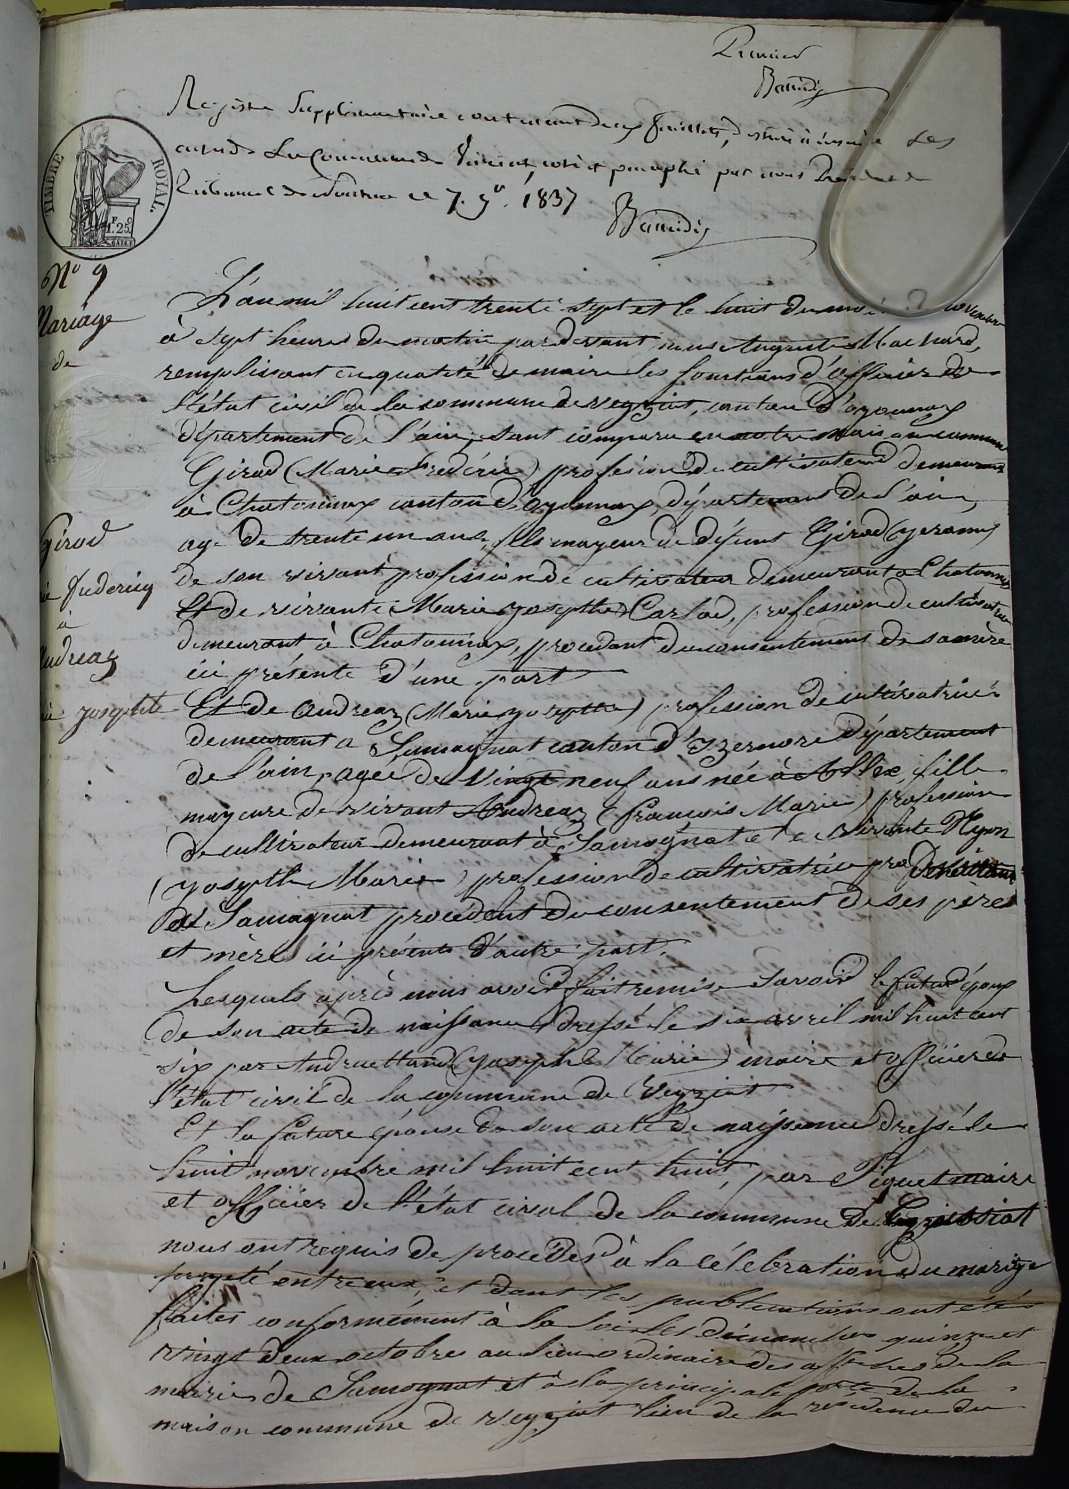 Premier
Baudin
Registre Supplémentaire contenant deux feuillets, destiné à inscrire les
actes de la Commune de Veiziat, coté et paraphé par nous Président du
Tribunal de Nantua le 7. 9bre. 1837
TIMBRE ROYAL.
1F.25c
N° 9
Mariage
de
Girod
Frédéric
à
Andréaz
Josephte
L'an mil huit cent trente sept et le huit du mois de novembre
à sept heures du matin pardevant nous Auguste Machard,
remplissant en qualité de maire les fonctions d'officier de
l'état civil de la commune de veyziat, canton d'oyonnax
département de l'ain, sont comparu en notre maison commune
Girod (Marie Frédéric) profession de cultivateur demeurant
à Chatonnax canton d'oyonnax, département de l'ain,
agé de trente un ans, fils mayeur de défunt Girod (
de son vivant profession de cultivateur demeurant à Chatonnax
Et de vivante Marie Josephte Carlod, profession de cultivatrice
demeurant à Chatonnax, procedant du consentement de sa mère
ici présente d'une part
Et de Andréaz (Marie Josephte) profession de cultivatrice
demeurant à Samognat canton d'Izernore département
de l'ain, agée de vingt neuf ans née à fille
mayeure de vivant Andréaz (françois Marie) profession
de cultivateur demeurant à Samognat et de vivante
(Josephte Marie) profession de cultivatrice
à Samognat procedent du consentement de ses père
et mère ici présents d'autre part.
Lesquels après nous avoir fait remise savoir le futur époux
de son acte de naissance dressé le six avril mil huit cent
six par (Joseph Marie) maire et officier de
l'état civil de la commune de Veyziat
Et la future épouse de son acte de naissance dressé le
huit novembre mil huit cent huit, par Piquet maire
et officier de l'état civil de la commune de
nous ont requis de procéder à la célébration du mariage
projeté entre eux, et dont les publications ont été
faites conformément à la loi les dimanches quinze et
vingt deux octobre au lieu ordinaire des affiches de la
mairie de Samognat et à la principale porte de la
maison commune de veyziat lieu de la résidence du